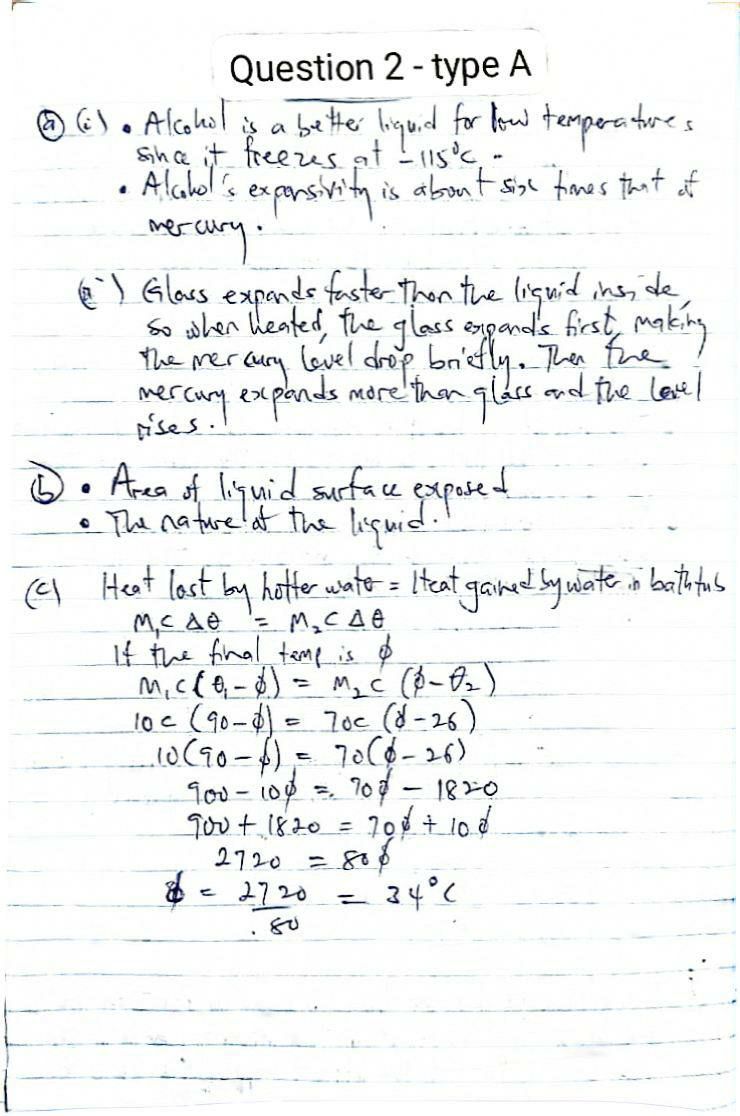 Question 2 - type A
(a) (i) • Alcohol is a better liquid for low temperatures
since it freezes at -115°C.
• Alcohol's expansivity is about six times that of
mercury.
(ii) Glass expands faster than the liquid inside,
so when heated, the glass expands first, making
the mercury level drop briefly. Then the
mercury expands more than glass and the level
rises.
(b) • Area of liquid surface exposed
• The nature of the liquid.
(c) Heat lost by hotter water = Heat gained by water in bathtub
M₁C Δθ = M₂C Δθ
If the final temp is ϕ
M₁C(θ₁-ϕ) = M₂C (ϕ-θ₂)
10C (90-ϕ) = 70C (ϕ-26)
10(90-ϕ) = 70(ϕ-26)
900 - 10ϕ = 70ϕ - 1820
900 + 1820 = 70ϕ + 10ϕ
2720 = 80ϕ
ϕ = 2720/80 = 34°C